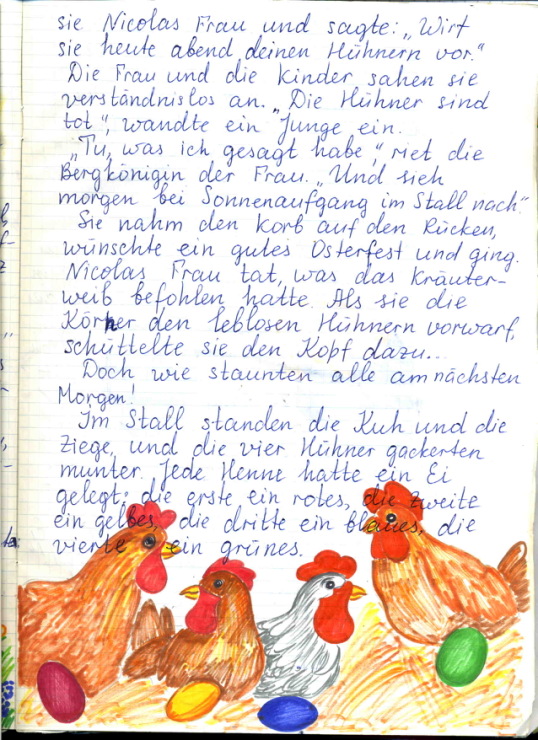 sie Nicolas Frau und sagte: „Wirf
sie heute abend deinen Hühnern vor."
Die Frau und die Kinder sahen sie
verständnislos an. „Die Hühner sind
tot", wandte ein Junge ein.
„Tu, was ich gesagt habe", riet die
Bergkönigin der Frau. „Und sieh
morgen bei Sonnenaufgang im Stall nach"
Sie nahm den Korb auf den Rücken,
wünschte ein gutes Osterfest und ging.
Nicolas Frau tat, was das Kräuter-
weib befohlen hatte. Als sie die
Körner den leblosen Hühnern vorwarf,
schüttelte sie den Kopf dazu...
Doch wie staunten alle am nächsten
Morgen!
Im Stall standen die Kuh und die
Ziege, und die vier Hühner gackerten
munter. Jede Henne hatte ein Ei
gelegt: die erste ein rotes, die zweite
ein gelbes, die dritte ein blaues, die
vierte ein grünes.